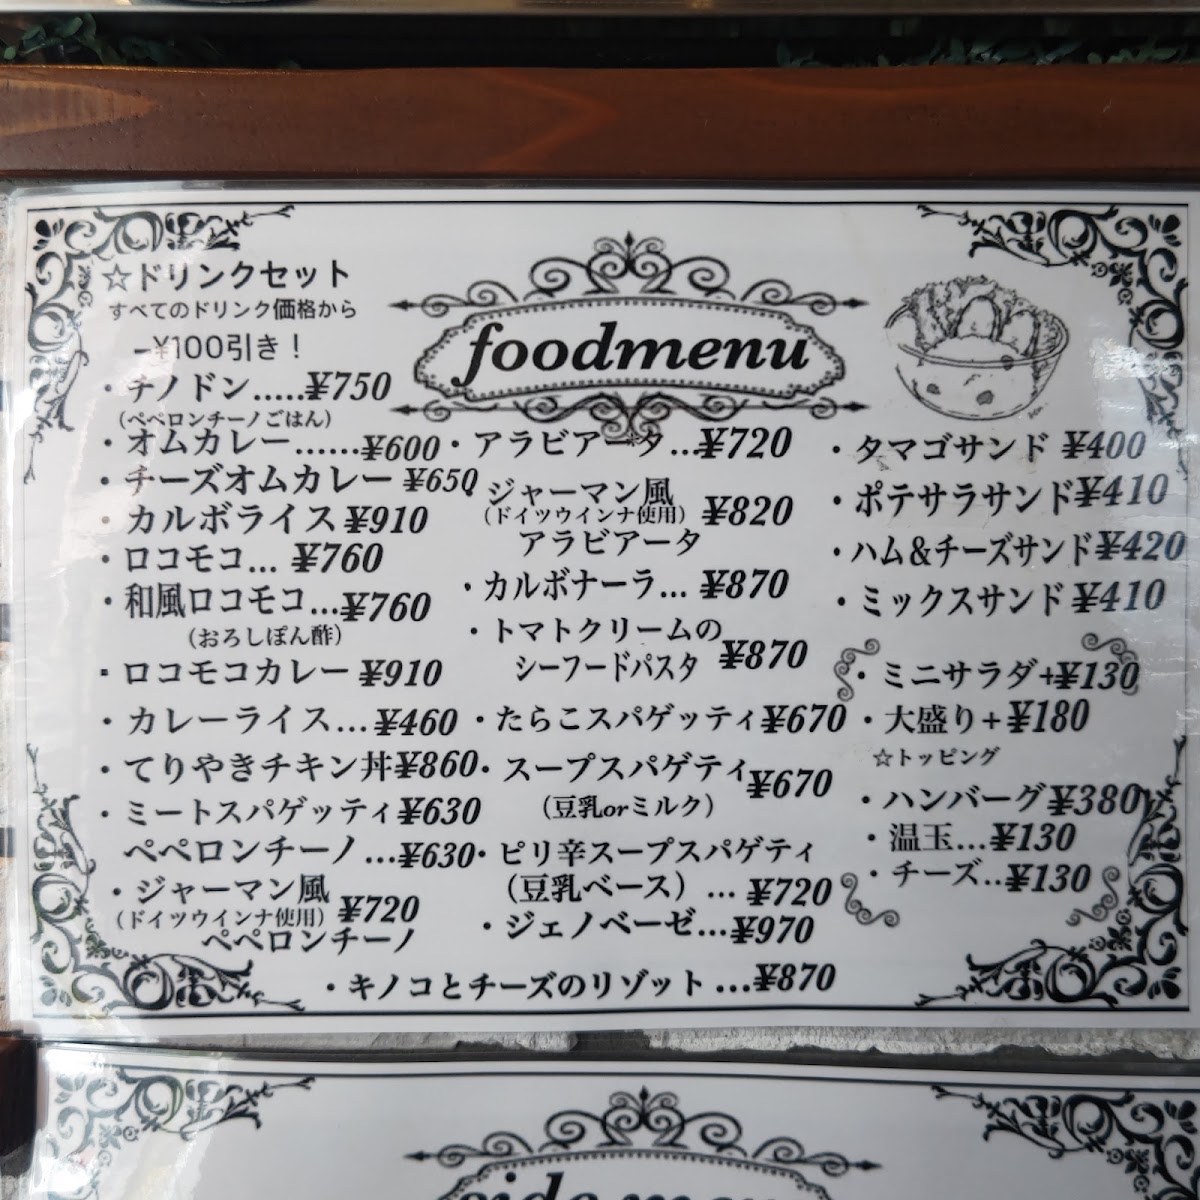 ☆ドリンクセット
すべてのドリンク価格から
-¥100引き！
foodmenu
・チノドン.....¥750
(ペペロンチーノごはん)
・オムカレー......¥600
・チーズオムカレー ¥650
・カルボライス ¥910
・ロコモコ... ¥760
・和風ロコモコ...¥760
(おろしぽん酢)
・ロコモコカレー ¥910
・カレーライス...¥460
・てりやきチキン丼¥860
・ミートスパゲッティ¥630
ペペロンチーノ...¥630
・ジャーマン風
(ドイツウインナ使用) ¥720
ペペロンチーノ
・アラビアータ...¥720
・ジャーマン風
(ドイツウインナ使用) ¥820
アラビアータ
・カルボナーラ... ¥870
・トマトクリームの
シーフードパスタ ¥870
・たらこスパゲッティ¥670
・スープスパゲティ¥670
(豆乳orミルク)
・ピリ辛スープスパゲティ
(豆乳ベース) ... ¥720
・ジェノベーゼ...¥970
・キノコとチーズのリゾット ...¥870
・タマゴサンド ¥400
・ポテサラサンド¥410
・ハム＆チーズサンド¥420
・ミックスサンド ¥410
・ミニサラダ+¥130
・大盛り+ ¥180
☆トッピング
・ハンバーグ¥380
・温玉...¥130
・チーズ...¥130